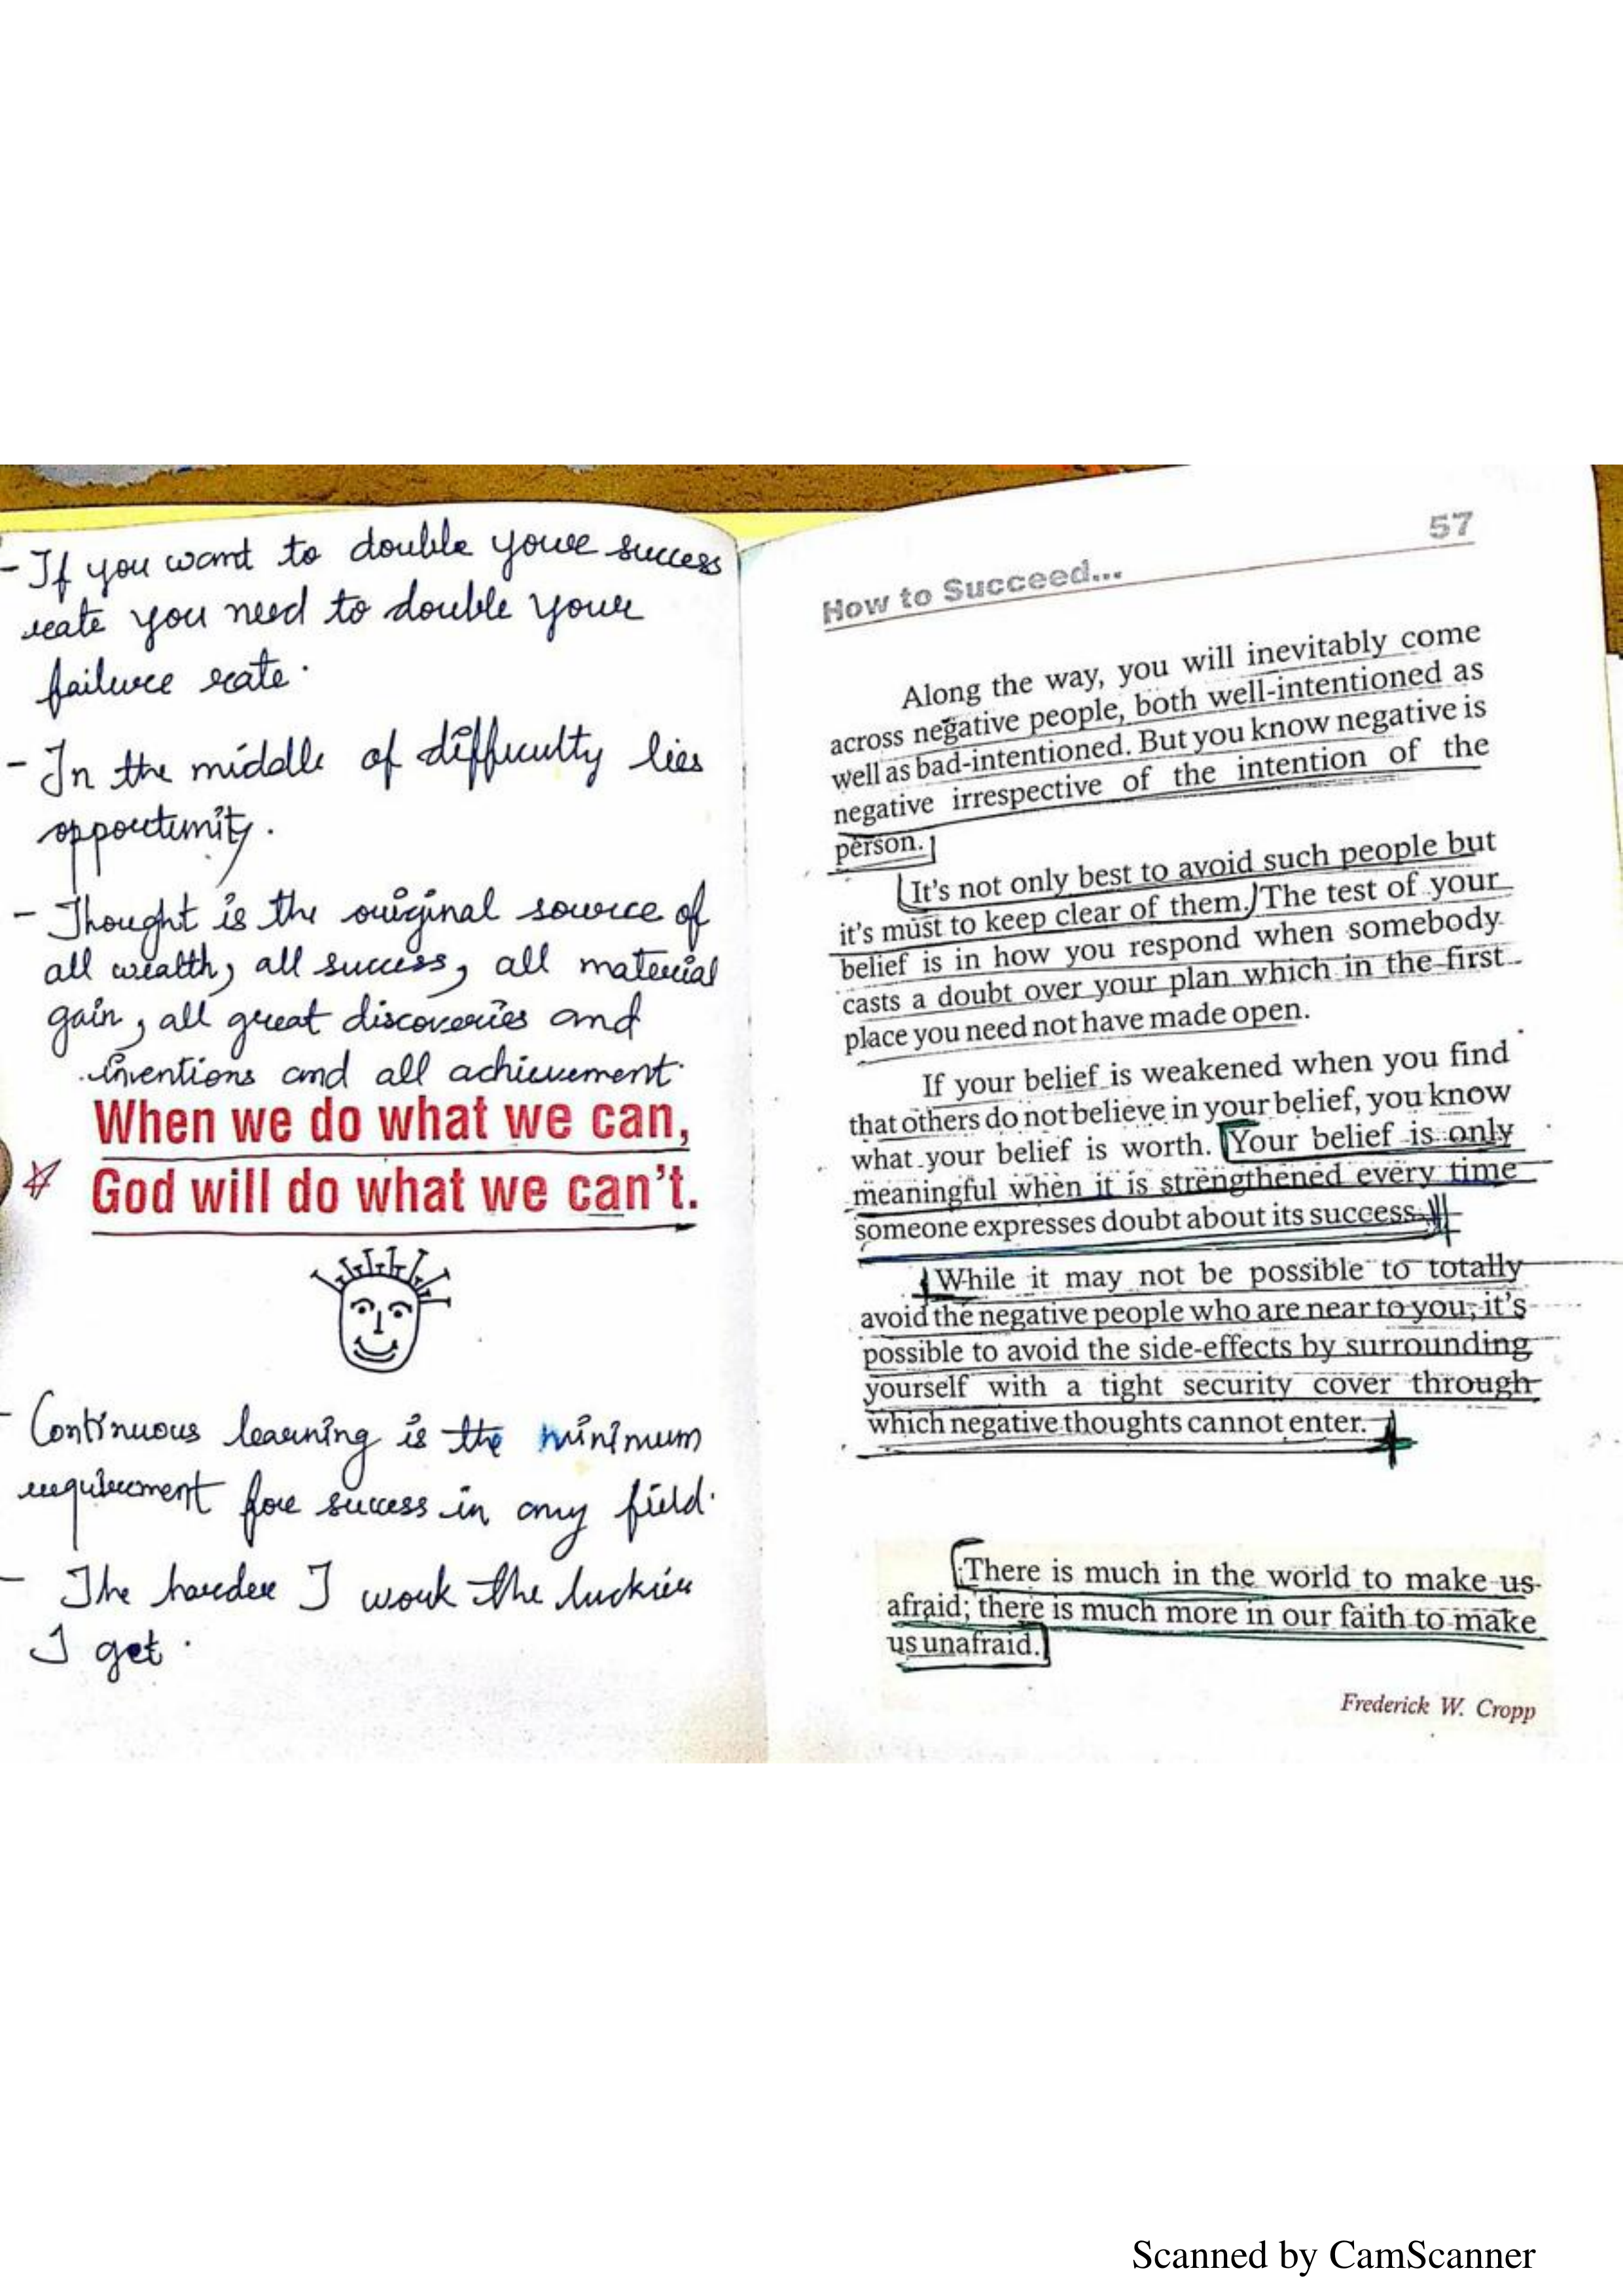 - If you want to double your success
rate you need to double your
failure rate.
- In the middle of difficulty lies
opportunity.
- Thought is the original source of
all wealth, all success, all material
gain, all great discoveries and
inventions and all achievement.
When we do what we can,
God will do what we can't.
- Continuous learning is the minimum
requirement for success in any field.
- The harder I work the luckier
I get.
How to Succeed... 57
Along the way, you will inevitably come
across negative people, both well-intentioned as
well as bad-intentioned. But you know negative is
negative irrespective of the intention of the
person.
It's not only best to avoid such people but
it's must to keep clear of them. The test of your
belief is in how you respond when somebody
casts a doubt over your plan which in the first
place you need not have made open.
If your belief is weakened when you find
that others do not believe in your belief, you know
what your belief is worth. Your belief is only
meaningful when it is strengthened every time
someone expresses doubt about its success.
While it may not be possible to totally
avoid the negative people who are near to you, it's
possible to avoid the side-effects by surrounding
yourself with a tight security cover through
which negative thoughts cannot enter.
There is much in the world to make us
afraid; there is much more in our faith to make
us unafraid.
Frederick W. Cropp
Scanned by CamScanner